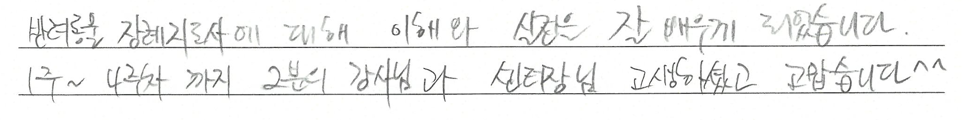 반려동물 장례지도사에 대해 이해와 실전은 잘 배우게 되었습니다.
1주~4주차 까지 2분의 강사님과 센터장님 고생하셨고 고맙습니다^^